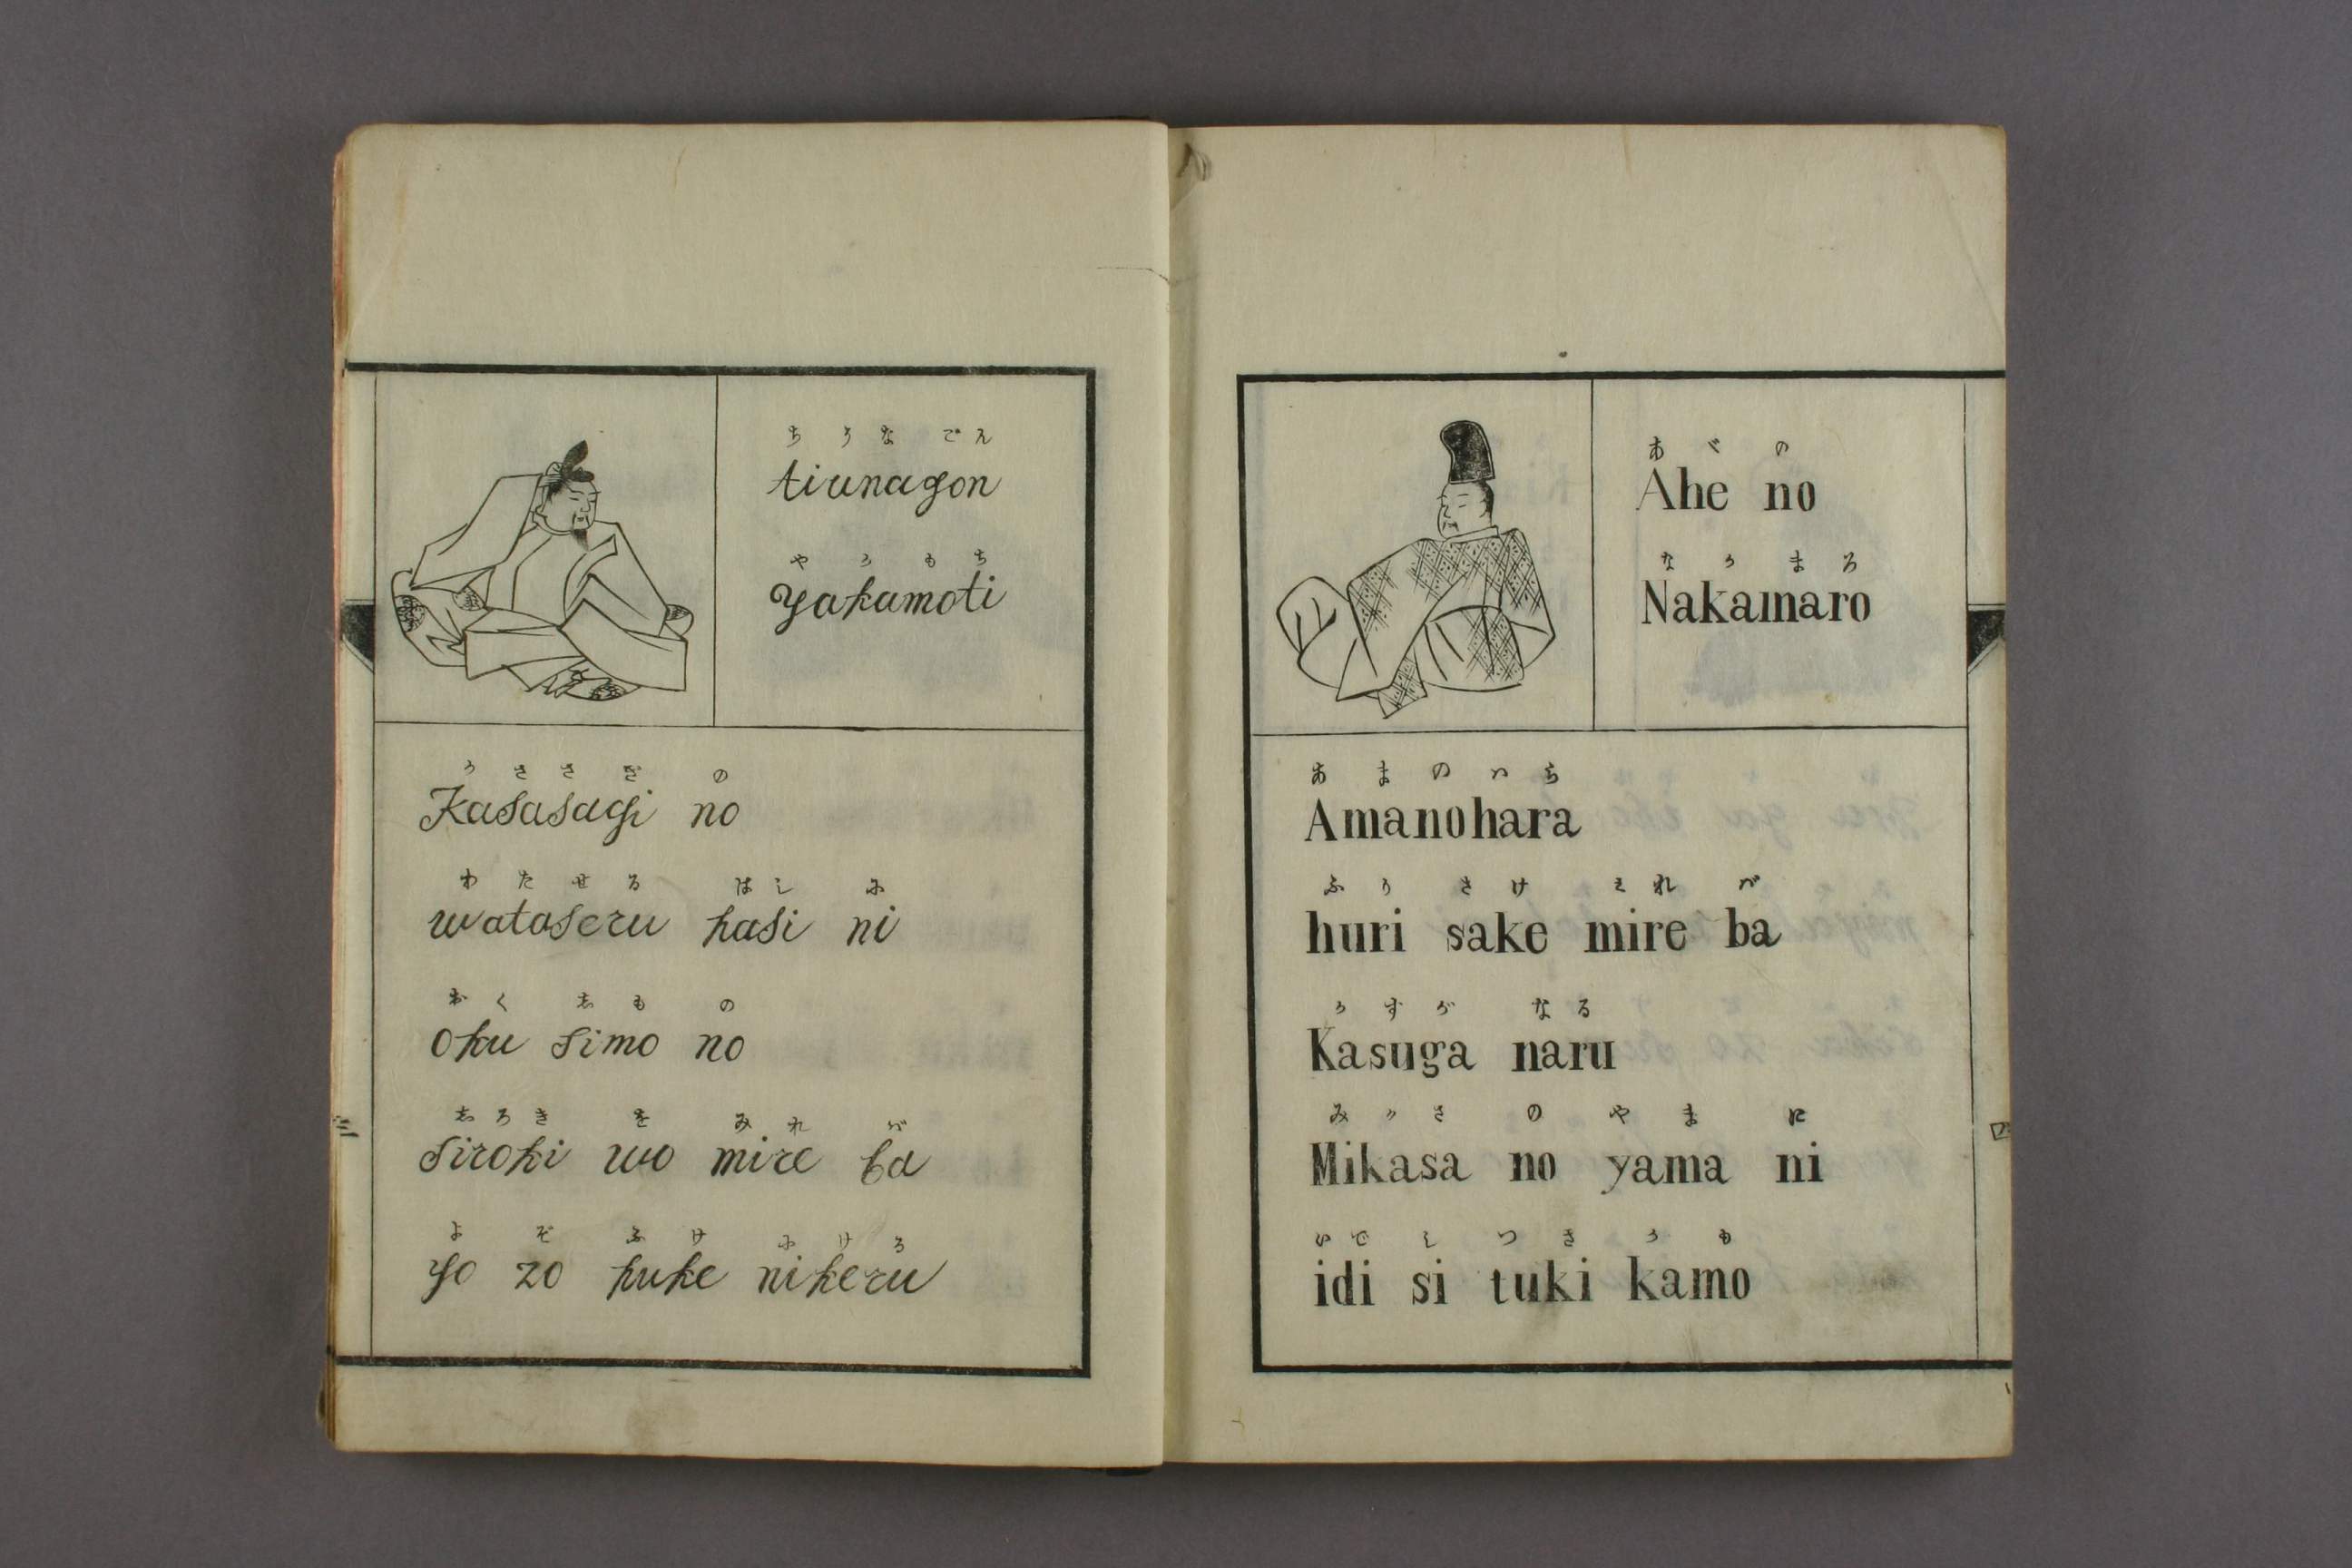 ちうなごん
tiunagon
やかもち
yakamoti
かささぎ の
Kasasagi no
わたせる はし に
wataseru hasi ni
おく しも の
oku simo no
しろき を みれ ば
siroki wo mire ba
よ ぞ ふけ にける
yo zo huke nikeru
三
あべ の
Ahe no
なかまろ
Nakamaro
あまのはら
Amanohara
ふり さけ みれ ば
huri sake mire ba
かすが なる
Kasuga naru
みかさ の やま に
Mikasa no yama ni
いで し つき かも
idi si tuki kamo
四